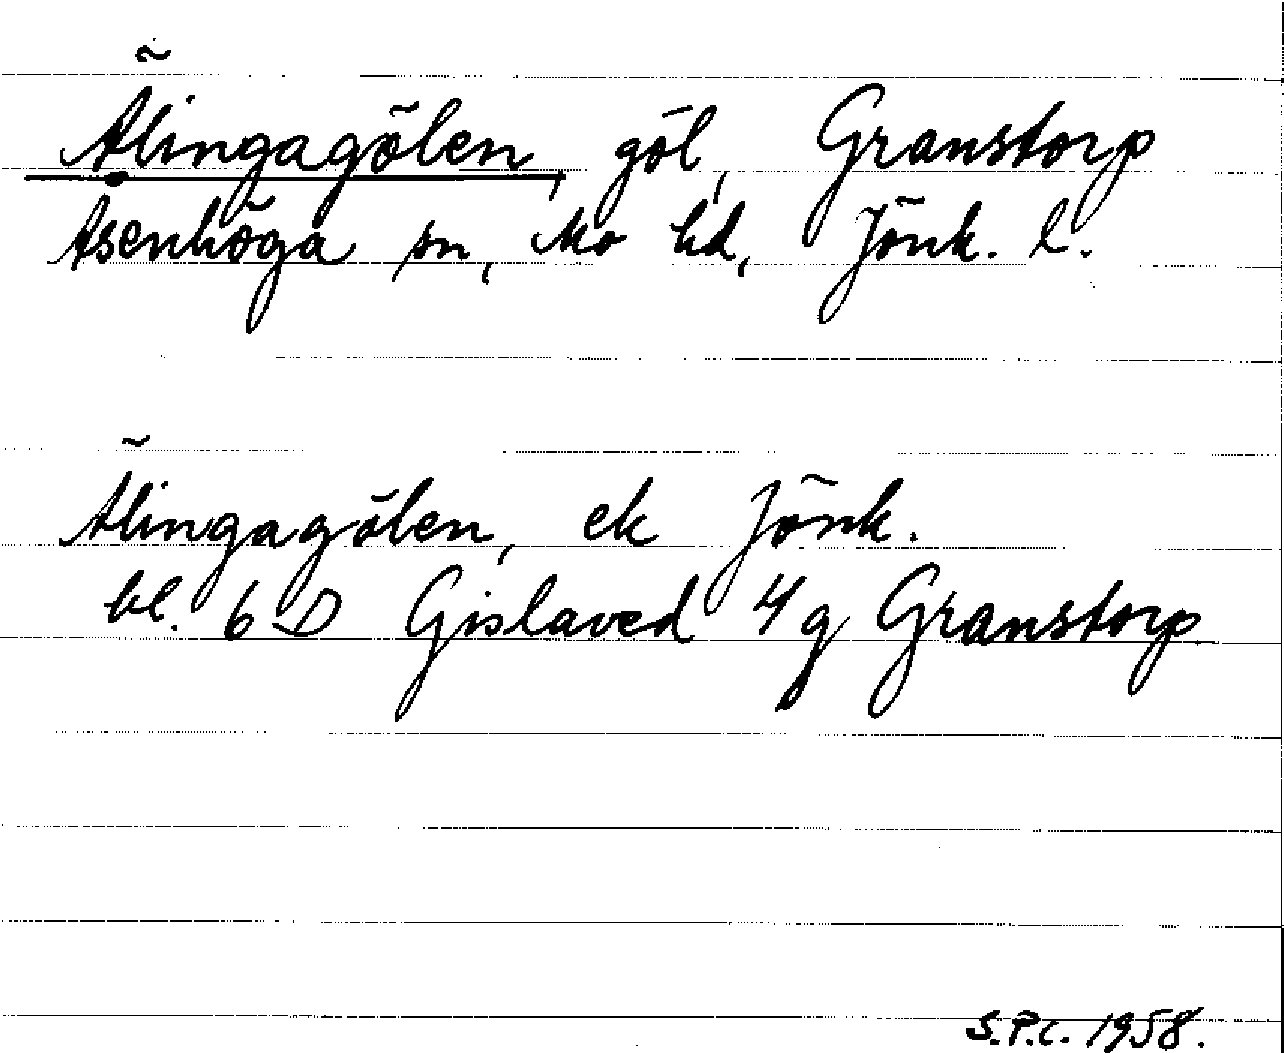 Älingagölen, göl, Granstorp
Åsenhöga sn, Mo hd, Jönk. l.
Älingagölen, ek Jönk.
bl. 6 D Gislaved 4 g Granstorp
S.P.C. 1958.